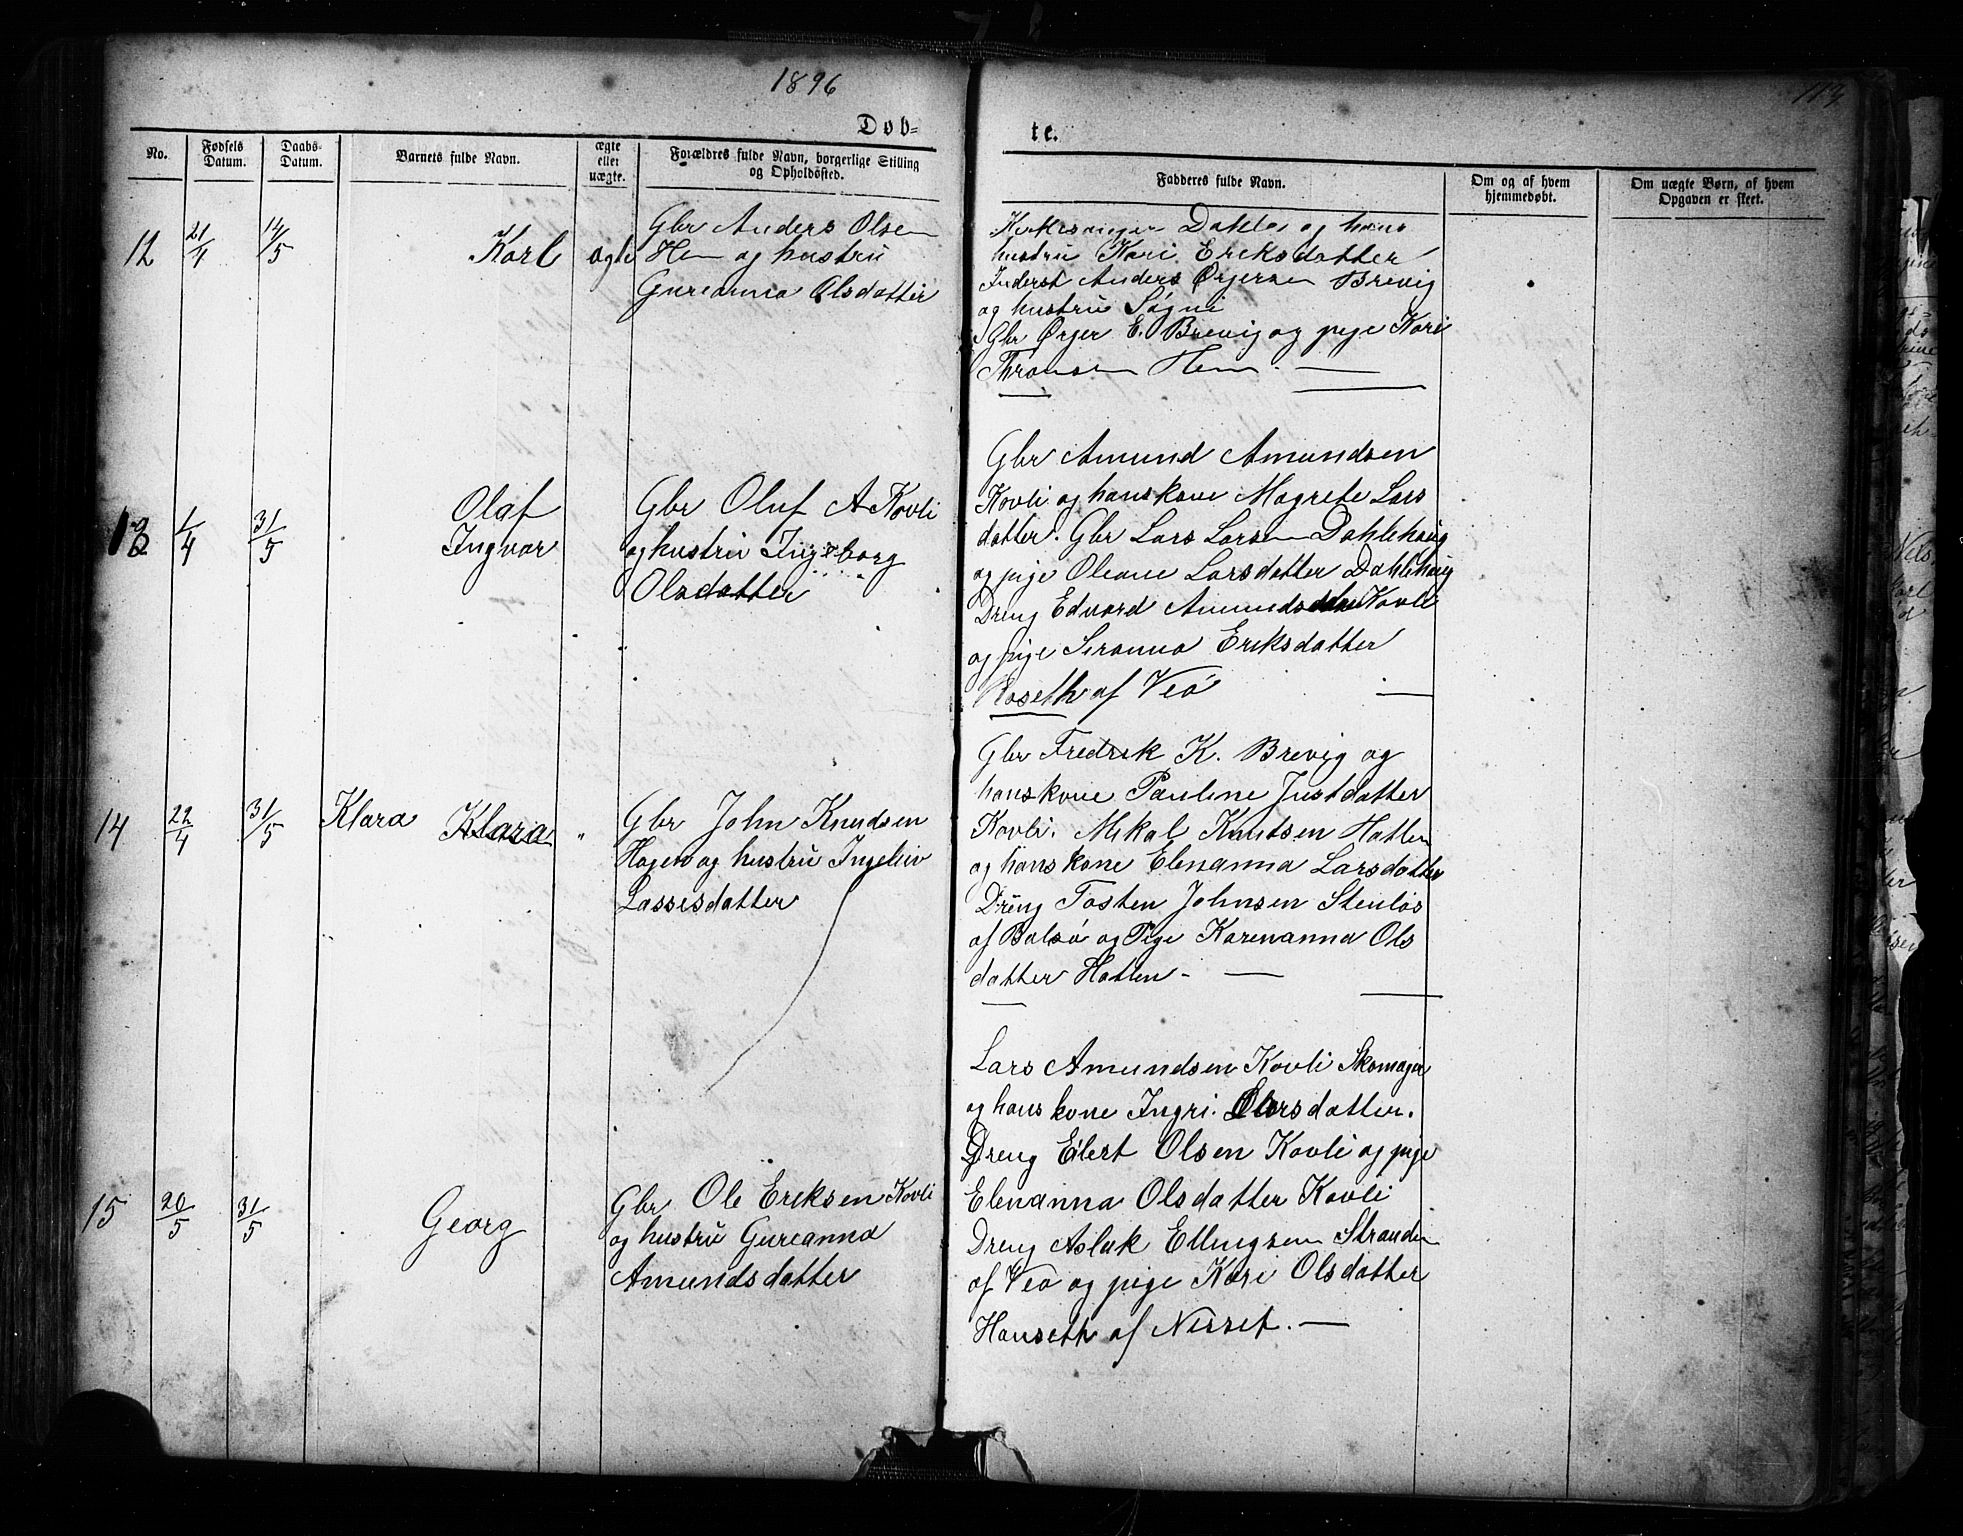 1896
113
Døb-
te.
No.
Fødsels Datum.
Daabs- Datum.
Barnets fulde Navn.
ægte eller uægte.
Forældres fulde Navn, borgerlige Stilling og Opholdssted.
Fadderes fulde Navn.
Om og af hvem hjemmedøbt.
Om uægte Børn, af hvem Opgaven er skeet.
12
21/4
14/5
Karl
ægte
Gbr Anders Olsen
Hem og hustru
Gureanna Olsdatter
Kirkesanger Dahle og hans
hustru Kari Eriksdatter
Inderst Anders Ørjersen Brevig
og hustru Søgni
Gbr Ørjer E. Brevig og pige Kari
Thronsen Hem. —
13
1/4
31/5
Olaf
Ingvar
Gbr Oluf A Kovli
og hustru Ingeborg
Olsdatter
Gbr Amund Amundsen
Kovli og hans kone Magrete Lars
datter. Gbr Lars Larsen Dahlehaug
og pige Oleane Larsdatter Dahlehaug
Dreng Edvard Amundsen Kovli
og pige Seranna Eriksdatter
Roseth af Veø —
14
22/4
31/5
Klara
Klara
"
Gbr John Knudsen
Hagen og hustru Ingeliv
Lassesdatter
Gbr Fredrik K. Brevig og
hans kone Pauline Justdatter
Kovli. Mikal Knutsen Hatlen
og hans kone Elenanna Larsdatter
Dreng Tosten Johnsen Stenløs
af Bolsø og Pige Karenanna Ols
datter Hatlen - —
15
20/5
31/5
Georg
Gbr Ole Eriksen Kovli
og hustru Gureanna
Amundsdatter
Lars Amundsen Kovli Skomager
og hans kone Ingri. Larsdatter.
Dreng Eilert Olsen Kovli og pige
Elenanna Olsdatter Kovli
Dreng Aslak Ellingsen Stranden
af Veø og pige Kari Olsdatter
Hanseth af Nesset. —